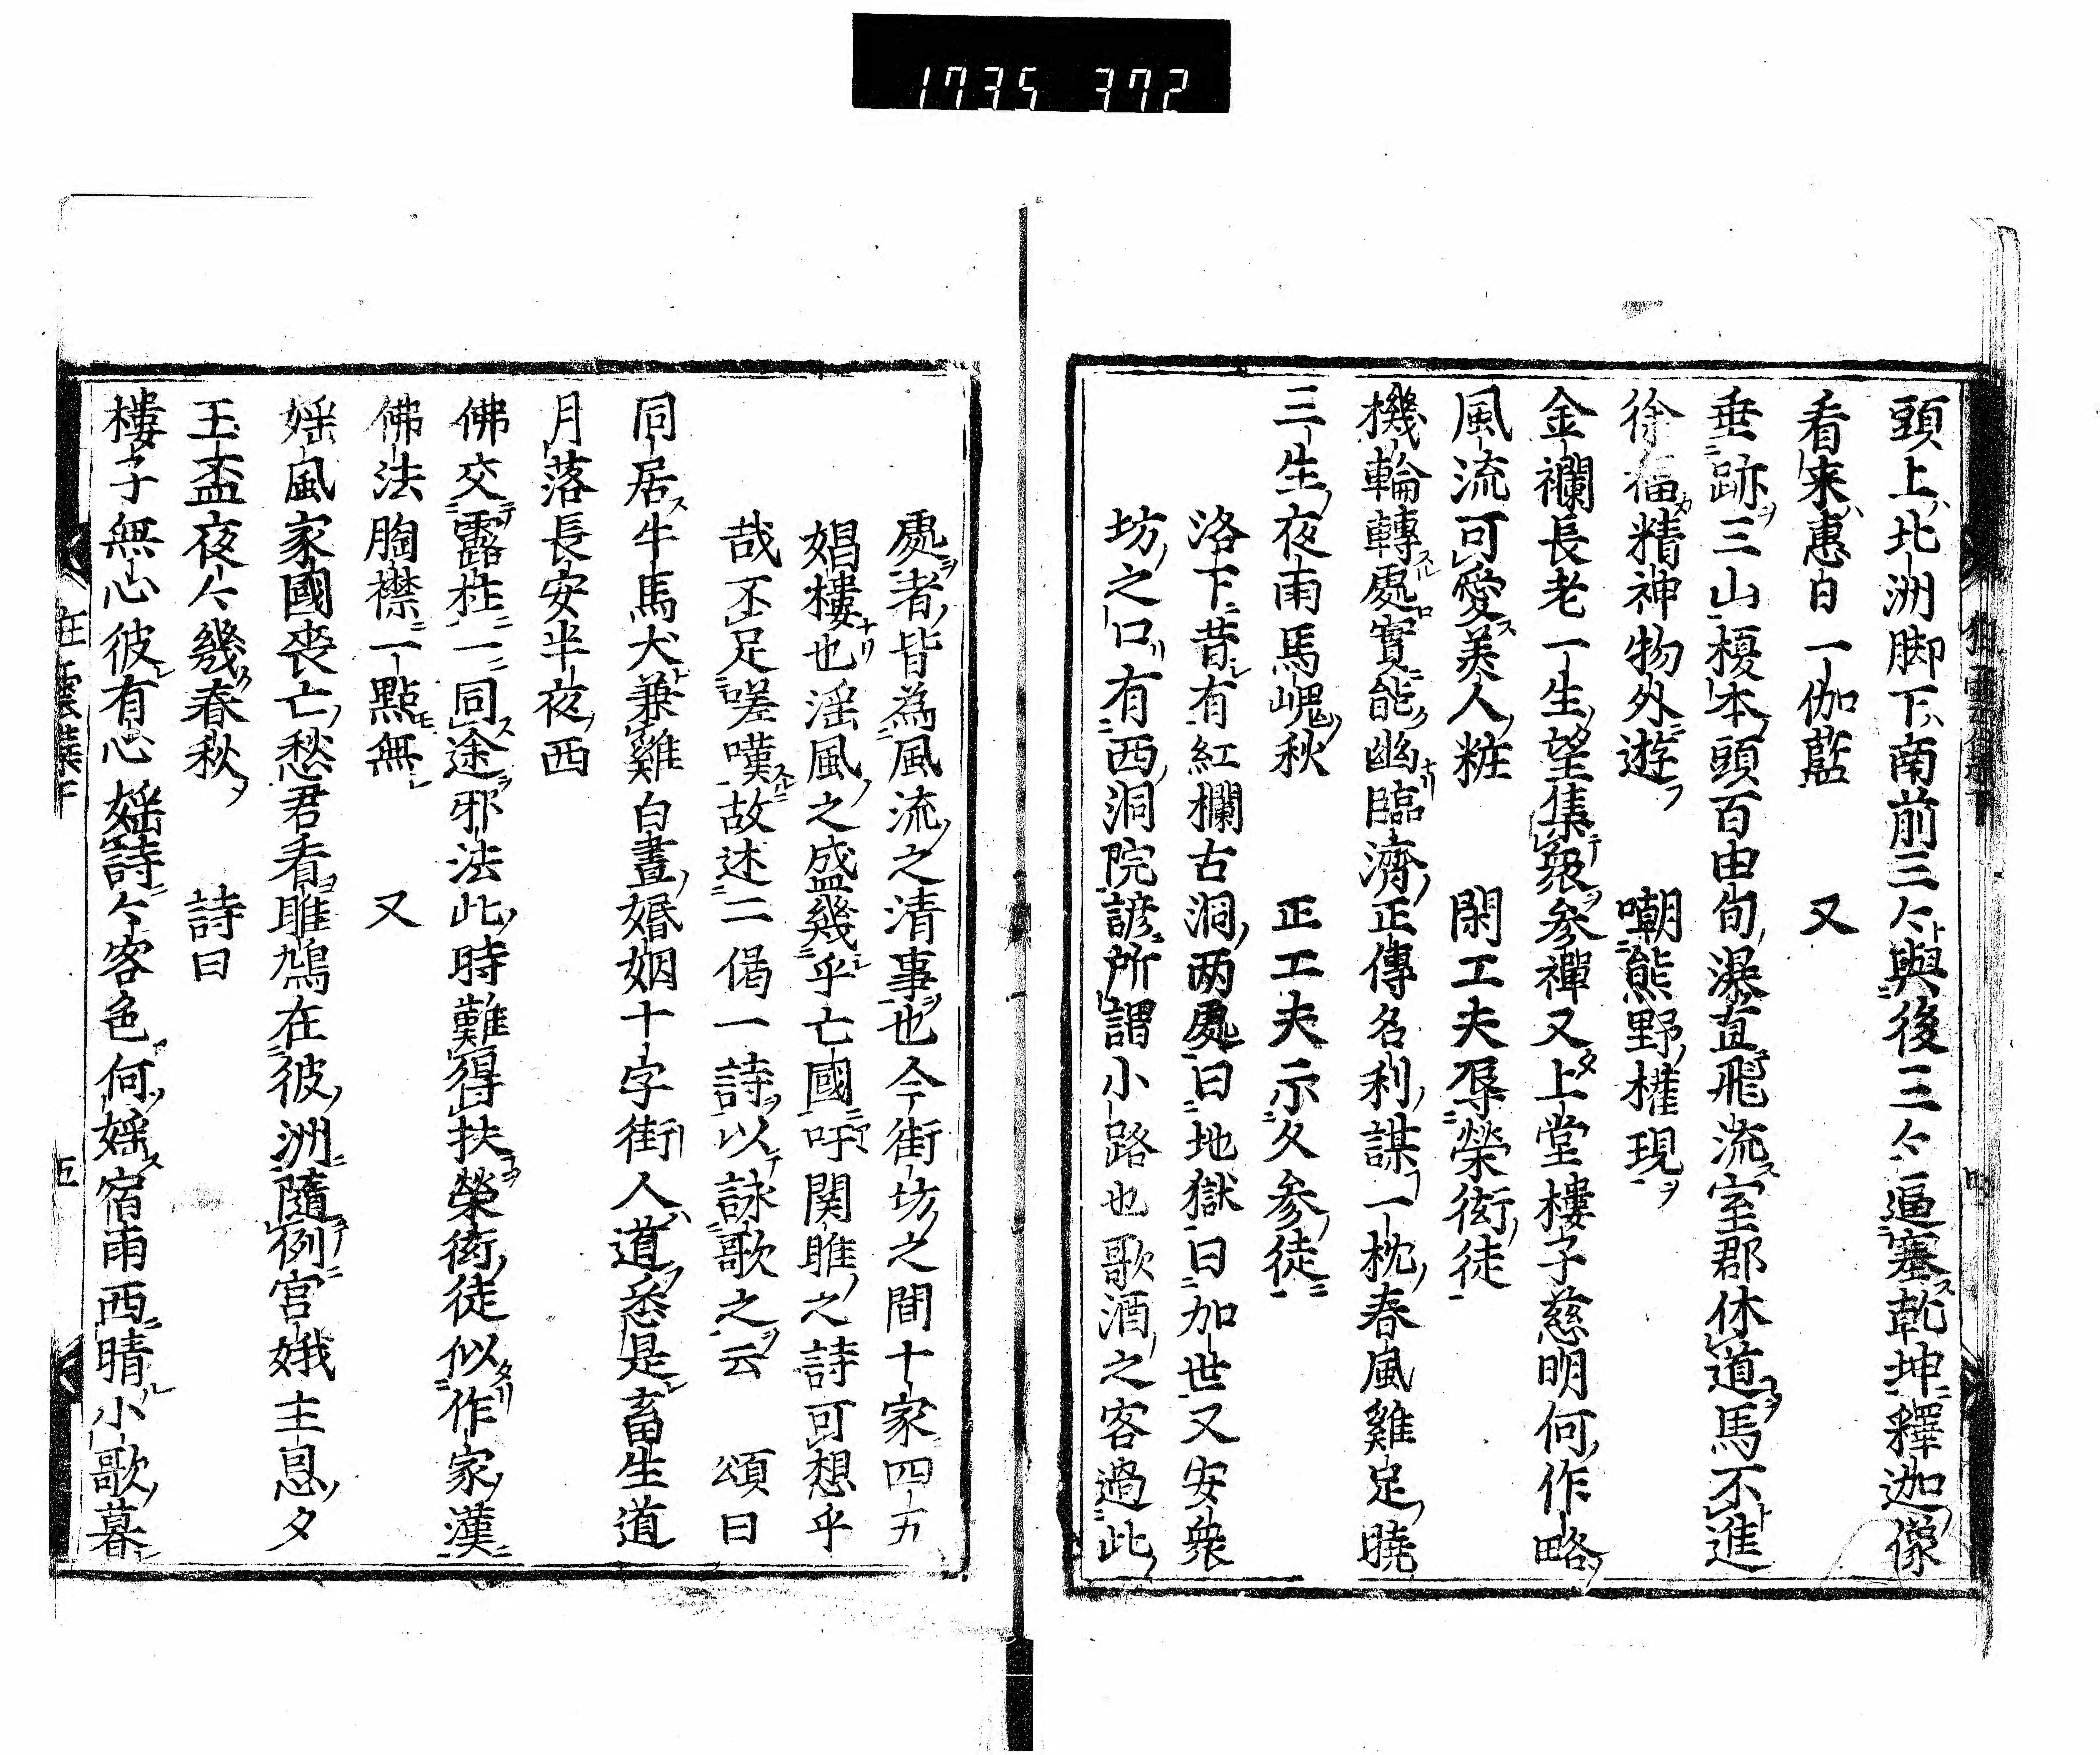 1735 372
頭上北洲脚下南前三々與後三々逼塞乾坤釋迦像
看来惠日一伽藍　又
垂跡三山榎本頭百由旬瀑直飛流室郡休道馬不進
徐福精神物外遊　嘲熊野權現
金襴長老一生望集衆参禪又上堂樓子慈明何作略
風流可愛美人粧　閑工夫辱榮衒徒
機輪轉處實能幽臨濟正傳名利謀一枕春風雞足曉
三生夜雨馬嵬秋　正工夫示久参徒
洛下昔有紅欄古洞両處曰地獄曰加世又安衆
坊之口有西洞院諺所謂小路也歌酒之客過此
處者皆為風流之清事也今街坊之間十家四五
娼樓也淫風之盛幾乎亡國吁関雎之詩可想乎
哉不足嗟嘆故述二偈一詩以詠歌之云　頌曰
同居牛馬犬兼雞白晝婚姻十字街人道悉是畜生道
月落長安半夜西
佛交露柱一同途邪法此時難得扶榮衒徒似作家漢
佛法胸襟一點無　又
婬風家國喪亡愁君看雎鳩在彼洲隨例宮娥主恩夕
玉盃夜々幾春秋　詩曰
樓子無心彼有心婬詩々客色何婬宿雨西晴小歌暮
狂雲集下　五